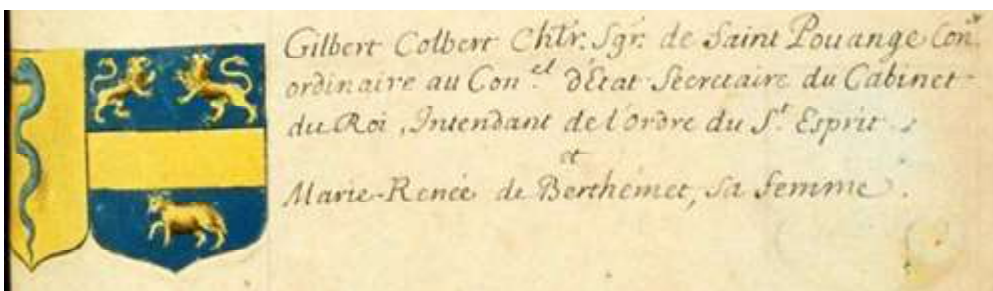 Gilbert Colbert Chlr. Sgr. de Saint Pouange Con.
ordinaire au Con.el d'Etat Secretaire du Cabinet
du Roi, Intendant de l'Ordre du St. Esprit.
et
Marie-Renée de Berthemet, sa femme.